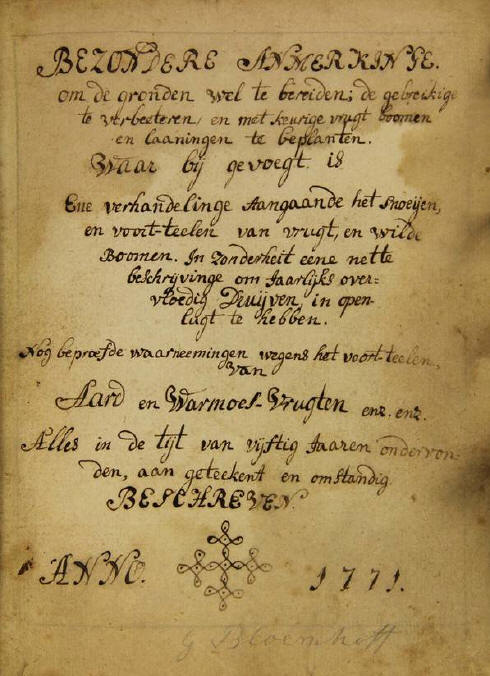 BEZONDERE ANMERKINGE.
om de gronden wel te bereiden; de gebrekkige
te verbeeteren, en met keurige vrugt boomen
en laaningen te beplanten.
Waar bij gevoegt is
Ene verhandelinge Aangaande het Snoeijen,
en voort-teelen van vrugt, en wilde
Boomen. In zonderheit eene nette
beschrijvinge om Jaarlijks over-
vloedig Druijven, in open-
lugt te hebben.
Nog beproefde waarneemingen wegens het voort-teelen,
van
Aard en Warmoes-Vrugten enz. enz.
Alles in de tijt van vijftig Jaaren ondervon-
den, aan geteekent en omstandig
BESCHREVEN.
ANNO. 1771.
G Bloemhoff